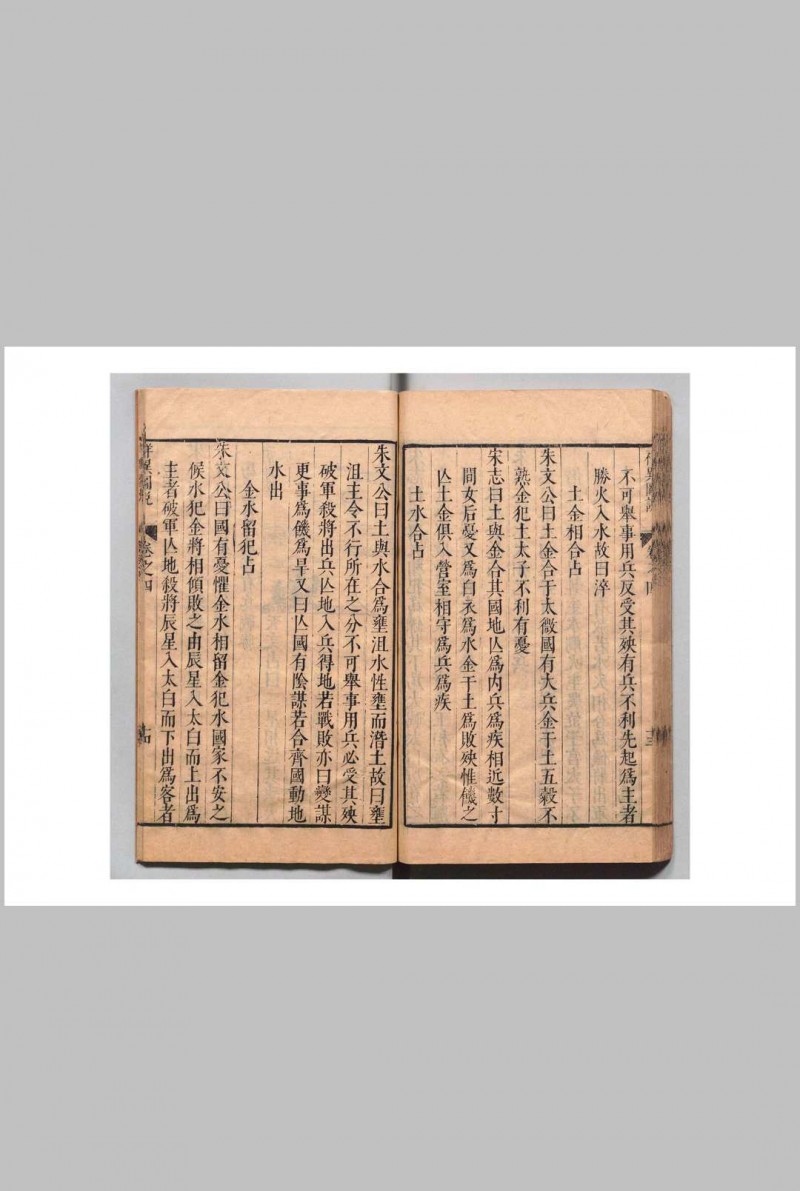 不可舉事用兵反受其殃有兵不利先起爲主者
勝火入水故曰淬
土金相合占
朱文公曰土金合于太微國有大兵金干土五穀不
熟金犯土太子不利有憂
宋志曰土與金合其國地亾爲内兵爲疾相近數寸
間女后憂又爲白衣爲水金干土爲敗殃惟饑之
亾土金俱入營室相守爲兵爲疾
土水合占
朱文公曰土與水合爲壅沮水性壅而潛土故曰壅
沮主令不行所在之分不可舉事用兵必受其殃
破軍殺將出兵亾地入兵得地若戰敗亦曰變謀
更事爲饑爲旱又曰亾國有陰謀若合齊國動地
水出
金水留犯占
朱文公曰國有憂懼金水相留金犯水國家不安之
候水犯金將相傾敗之由辰星入太白而上出爲
主者破軍亾地殺將辰星入太白而下出爲客者
祥異圖說
卷之四
十四